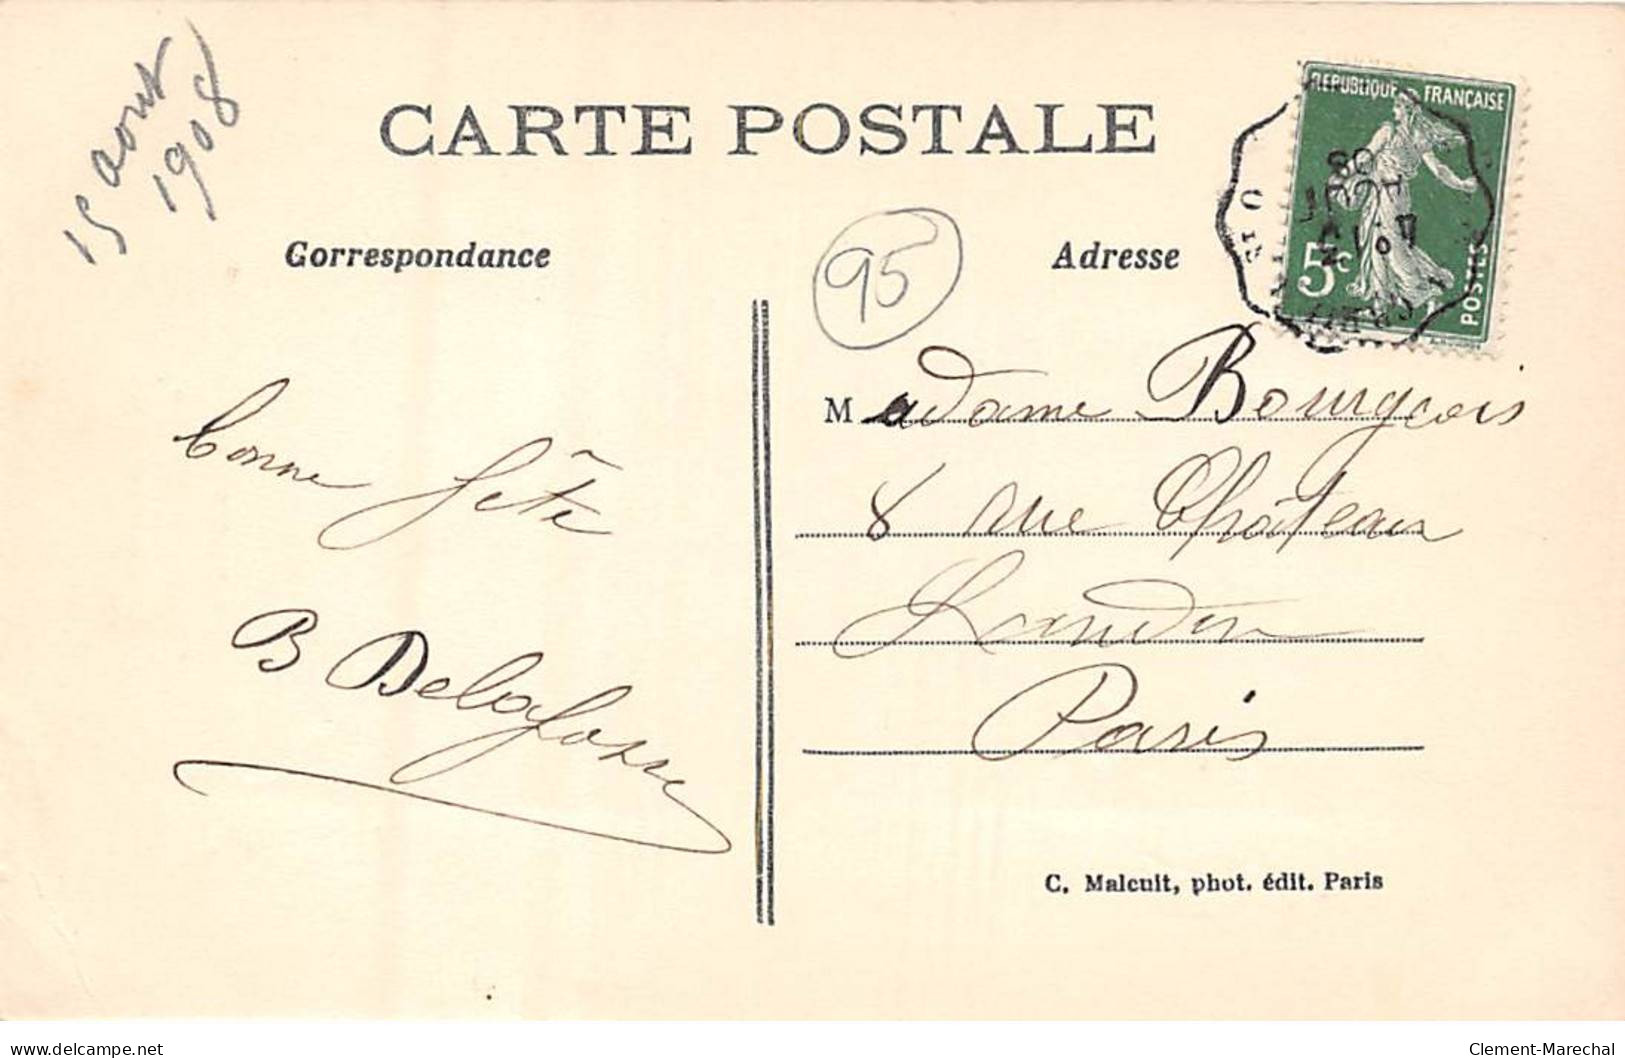 15 aout
1908
CARTE POSTALE
REPUBLIQUE FRANÇAISE
5c
POSTES
AOUT
08
Correspondance
Adresse
95
Madame Bourgeois
8 rue Château
Landon
Paris
bonne fête
B Delafosse
C. Malcuit, phot. édit. Paris
delcampe.net
Clement-Marechal